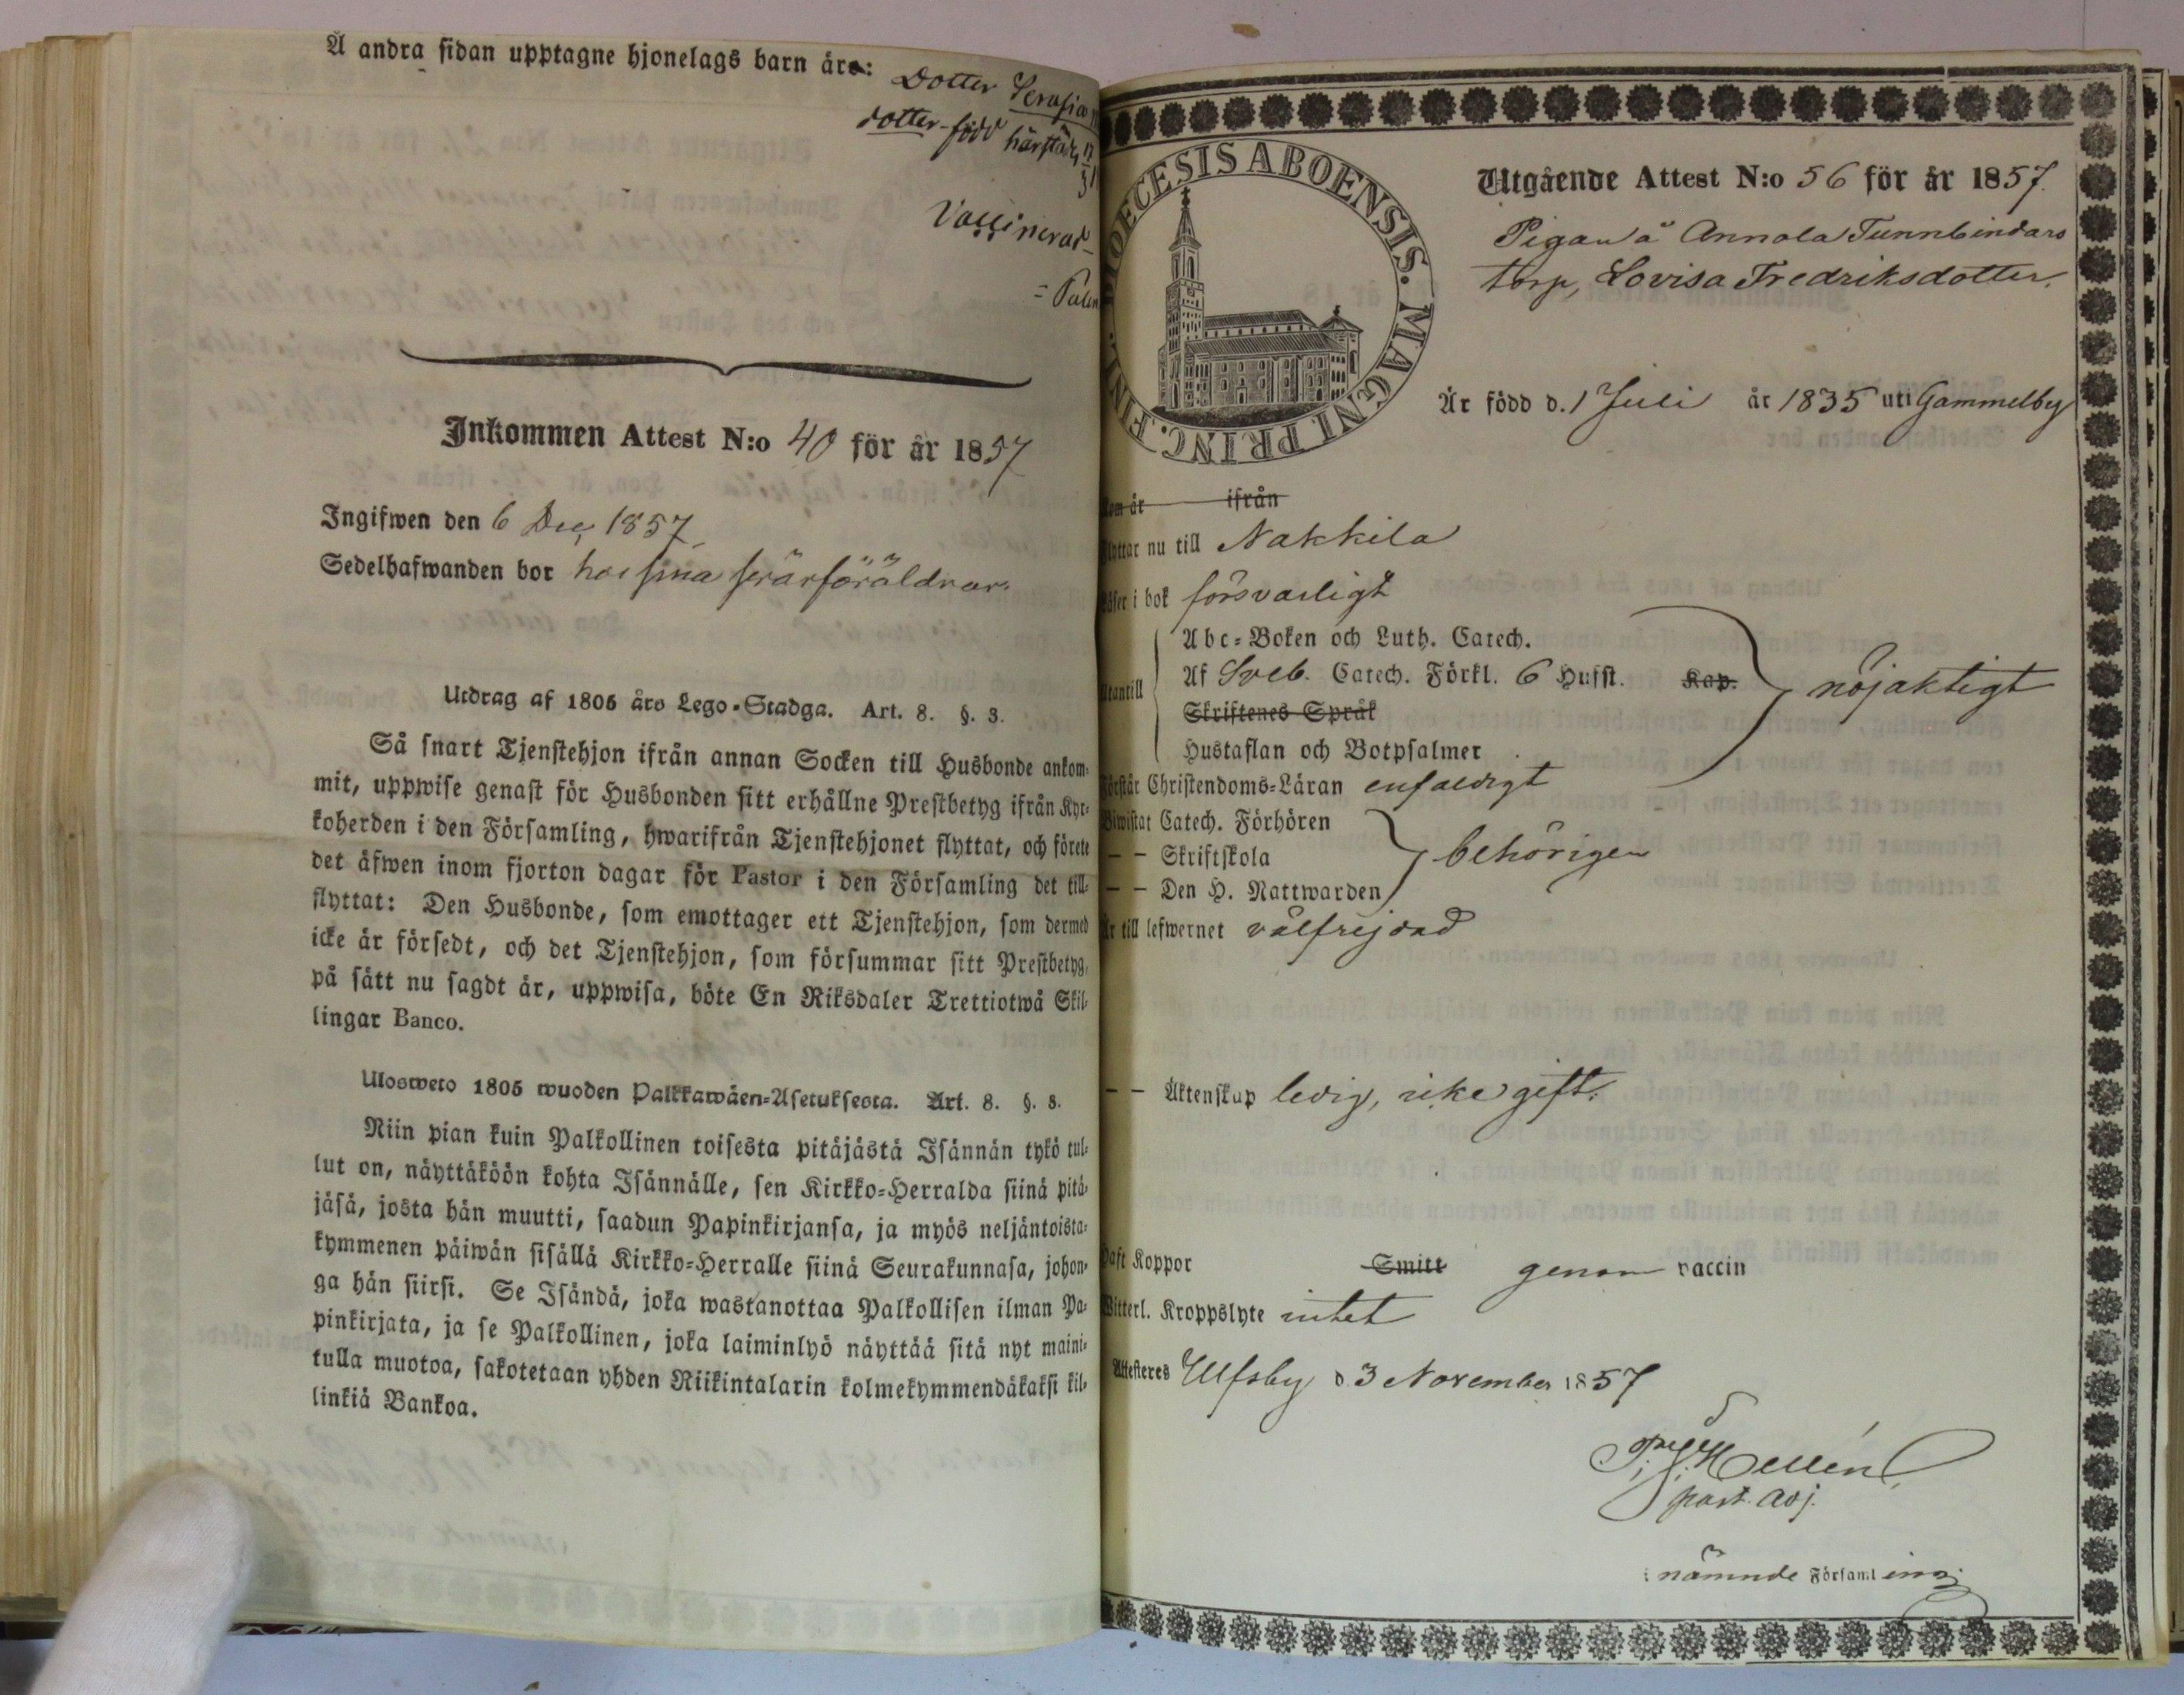 Å andra sidan upptagne hjonelags barn äro:
Dotter Serafia
dotter född härstädes
Vaccinerad
Inkommen Attest N:o 40 för år 1857
Ingifwen den 6 Dec 1857
Sedelhafwanden bor hos sina svärföräldrar.
Utdrag af 1805 års Lego-Stadga. Art. 8. §. 3.
Så snart Tjenstehjon ifrån annan Socken till Husbonde ankom-
mit, uppwise genast för Husbonden sitt erhållne Prestbetyg ifrån Kyr-
koherden i den Församling, hwarifrån Tjenstehjonet flyttat, och förete
det äfwen inom fjorton dagar för Pastor i den Församling det till-
flyttat: Den Husbonde, som emottager ett Tjenstehjon, som dermed
icke är försedt, och det Tjenstehjon, som försummar sitt Prestbetyg,
på sätt nu sagdt är, uppwisa, böte En Riksdaler Trettiotwå Skil-
lingar Banco.
Ulosweto 1805 wuoden Palkkawäen-Asetuksesta. Art. 8. §. 3.
Niin pian kuin Palkollinen toisesta pitäjästä Isännän tykö tul-
lut on, näyttäköön kohta Isännälle, sen Kirkko-Herralda siinä pitä-
jäsä, josta hän muutti, saadun Papinkirjansa, ja myös neljäntoista-
kymmenen päiwän sisällä Kirkko-Herralle siinä Seurakunnasa, johon-
ga hän siirsi. Se Isändä, joka wastanottaa Palkollisen ilman Pa-
pinkirjata, ja se Palkollinen, joka laiminlyö näyttää sitä nyt maini-
tulla muotoa, sakotetaan yhden Riikintalarin kolmekymmendäkaksi kil-
linkiä Bankoa.
DIOECESIS ABOENSIS. MAGNI PRINC. FINL.
Utgående Attest N:o 56 för år 1857.
Pigan å Annola Tunnbindars
torp, Lovisa Fredriksdotter.
Är född d. 1 Juli år 1835 uti Gammelby
Kom år ifrån
Flyttar nu till Nakkila
Läser i bok försvarligt
Abc-Boken och Luth. Catech.
Utantill Af Sveb. Catech. Förkl. 6 Hufst. Kap. nöjaktigt
Skriftenes Språk
Hustaflan och Botpsalmer
Förstår Christendoms-Läran enfaldigt
Biwistat Catech. Förhören
— — Skriftskola behörigen
— — Den H. Nattwarden
Är till lefwernet välfrejdad
— — Äktenskap ledig, icke gift.
Haft Koppor Smitt genom vaccin
Witterl. Kroppslyte intet
Attesteras Ulfsby d. 3 November 1857
Hellén
past. adj.
i nämnde Församling.